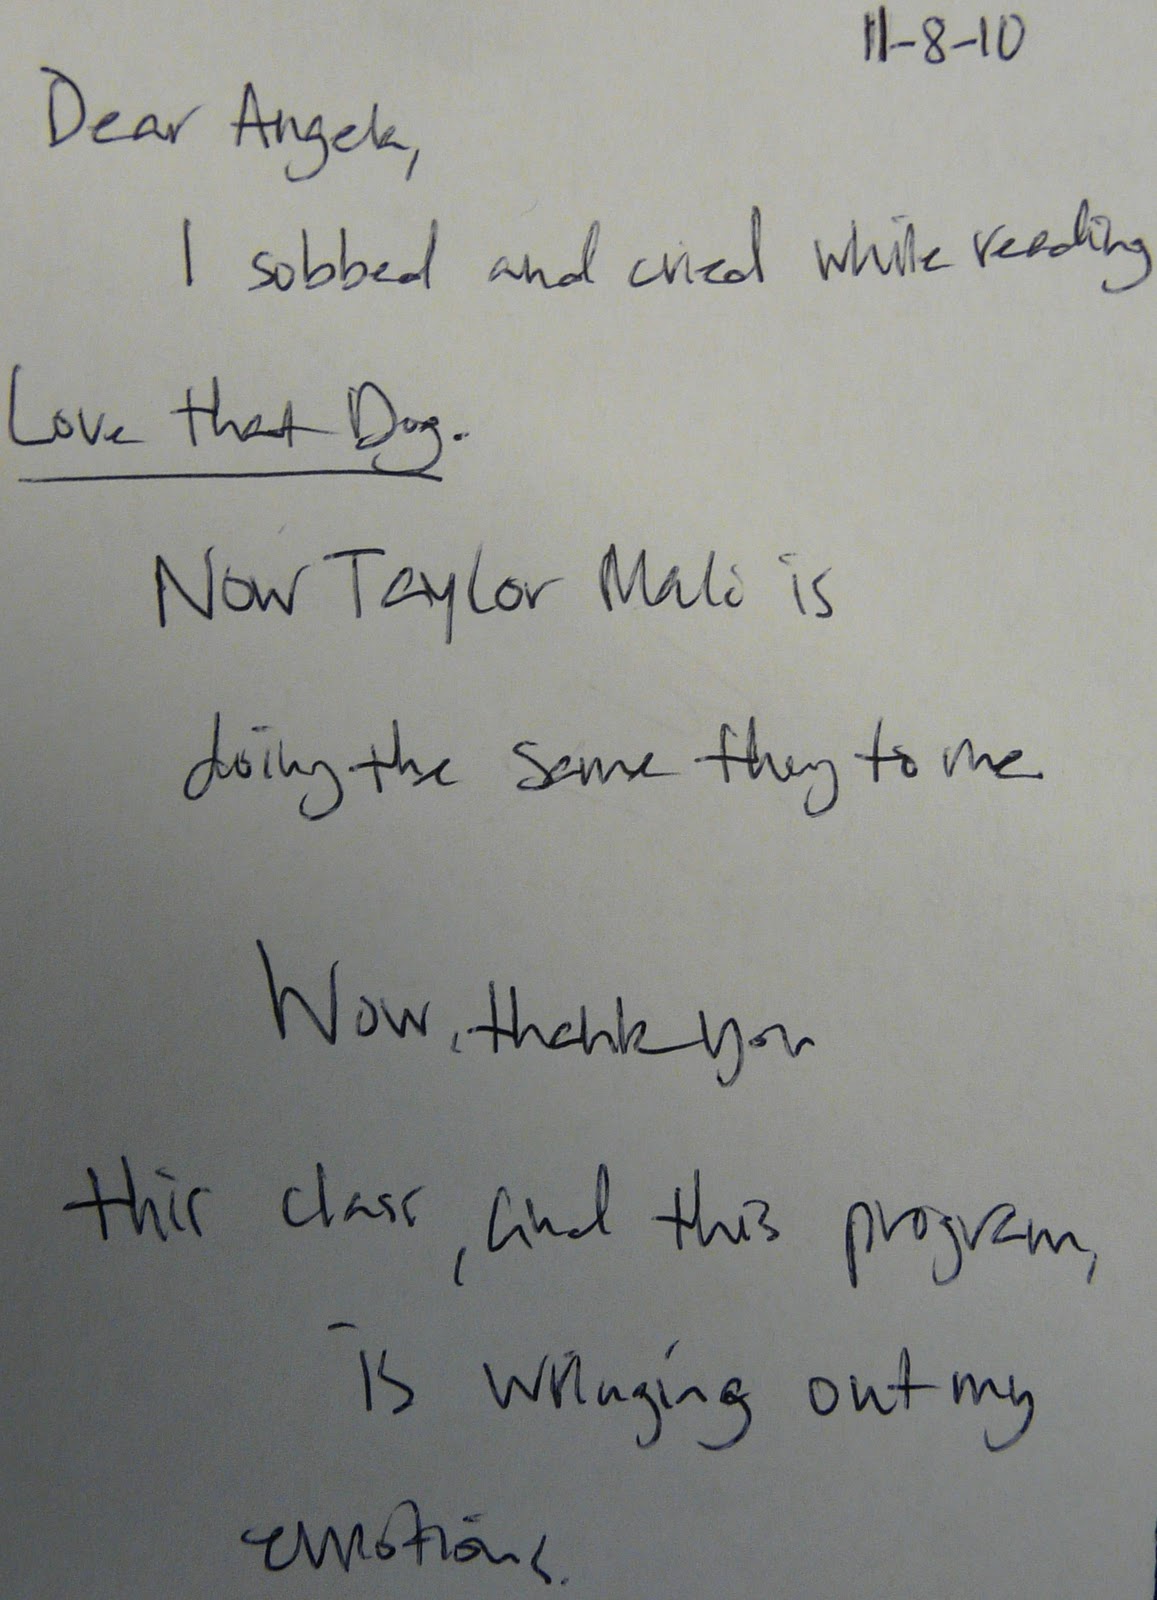 11-8-10
Dear Angela,
I sobbed and cried while reading
Love that Dog.
Now Taylor Mali is
doing the same thing to me
Wow, thank you
this class, and this program,
is wringing out my
emotions.